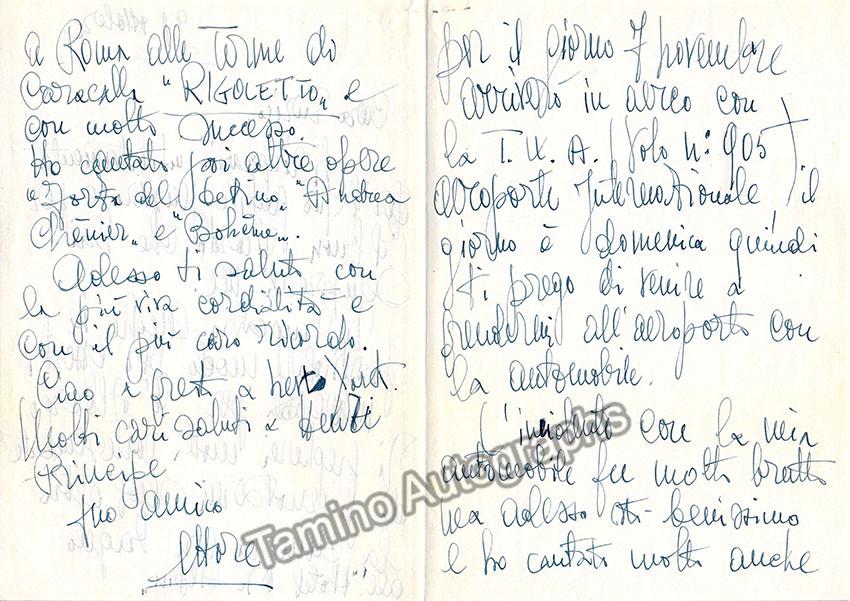 per il giorno 7 novembre
arriverò in aereo con
la T.W.A. (Volo n° 905
aeroporto Internazionale) il
giorno è domenica quindi
ti prego di venire a
prendermi all'aeroporto con
la automobile.
L'incidente con la mia
automobile fu molto brutto
ma adesso sto benissimo
e ho cantato molto anche
a Roma alle Terme di
Caracalla "RIGOLETTO" e
con molto successo.
Ho cantato poi altre opere
"Forza del Destino" "Andrea
Chénier" e "Bohème".
Adesso ti saluto con
la più viva cordialità e
con il più caro ricordo.
Ciao e presto a New York.
Molti cari saluti a
Principe
tuo amico
Ettore
Tamino Autographs